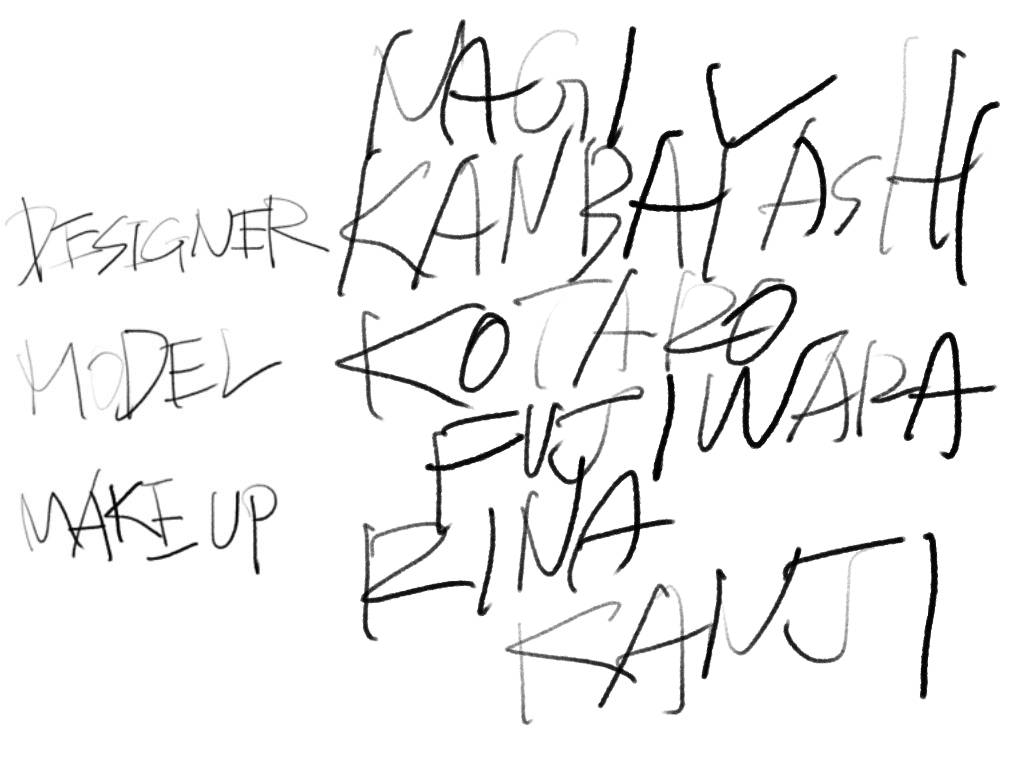 NAGI
DESIGNER KANBAYASHI
MODEL KOTARO
FUJIWARA
MAKE UP RINA
KANJI